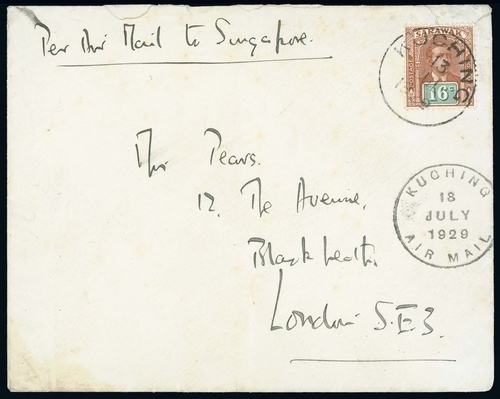 Per Air Mail to Singapore.
SARAWAK
16c
KUCHING
13
Mrs Pears.
12. The Avenue,
Blackheath,
London S.E3.
KUCHING
18
JULY
1929
AIR MAIL